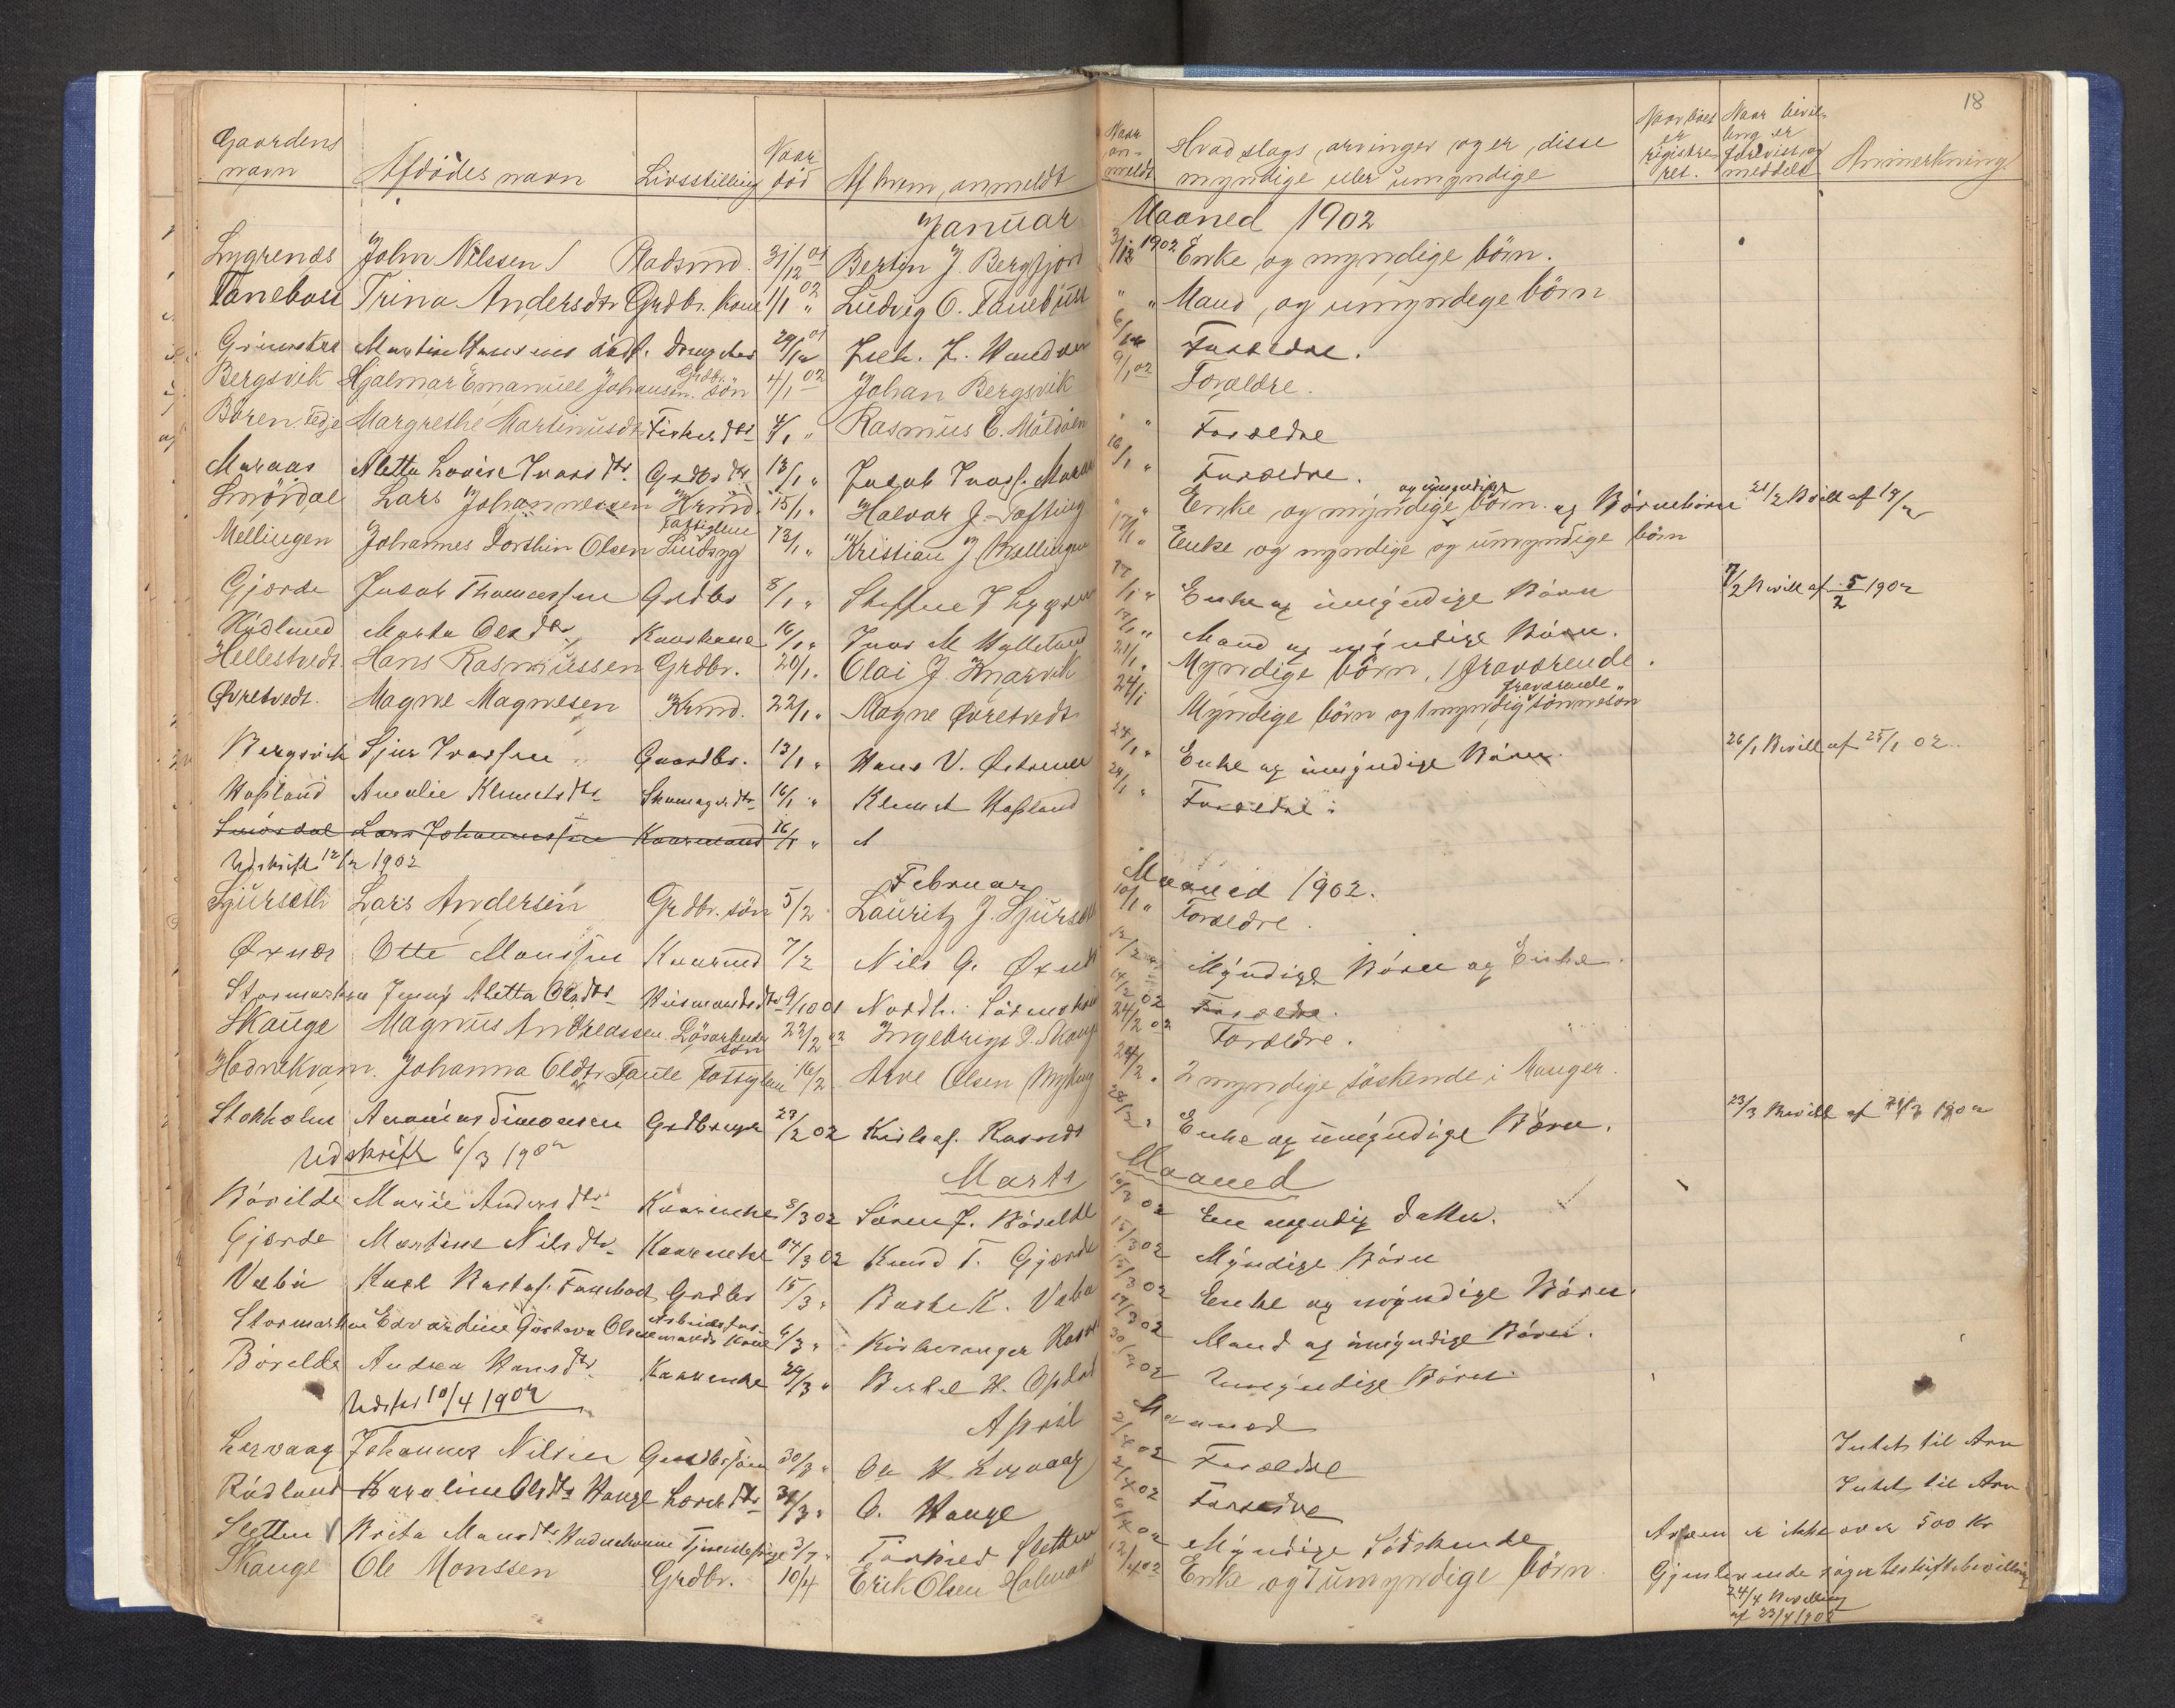 18
Gaardens navn | Afdödes navn | Livsstilling | Naar död | Af hvem anmeldt | Naar anmeldt | Hvad slags arvinger og er disse myndige eller umyndige | Naar boet er registreret. | Naar bevilling er forevist og meddelt | Anmerkning
Januar Maaned 1902
Lygrends | John Nilssen | Baadsmd. | 31/12 01 | Bertin J. Bergfjord | 3/12 1902 | Enke og myndige börn.
Tanebou | Trina Andersdtr | Grdbr. kone | 1/1 02 | Ludvig O. Tanebuu | " " | Mand, og umyndege börn
Grimstad | Martin | 29/12 01 | Joh. J. | 6/1 | Forældre.
Bergsvik | Hjalmar Emanuel Johansen. | Grdbr. sön | 4/1 02 | Johan Bergsvik | 9/1 02 | Forældre.
Bören Fedje | Margrethe Martinusdtr | Fisker dtr | 4/1 " | Rasmus C. Moldöen | " " | Forældre
Maraas | Aletta Lovise Ivars dtr. | Grdbr dtr | 13/1 " | Jakob Ivars. Maraas | 16/1 " | Forældre.
Smördal | Lars Johannessen | Krmd. | 15/1 " | Halvor J. Tofting | " | Enke og myndige og umyndige börn. og Börnebörn | 21/2 Bevill af 17/2
Mellingen | Johannes Dorthin Olsen | Fattiglem Lindsyg | 12/1 " | Kristian J Mellingen | 17/1 " | Enke og myndige og umyndige börn
Gjerde | Jakob Thomassen | Grdbr | 8/1 " | Steffen J Lygren | 17/1 " | Enke og umyndige Börn | 7/2 Bevill af 5/2 1902
Rödland | Marta Ols dtr | Kaarkone | 16/1 " | Ivar M Hylleland | 17/1 " | Mand og myndige Börn.
Hellestvedt. | Hans Rasmussen | Grdbr. | 20/1. | Olai J. Knarvik | 21/1. | Myndige börn, 1 fraværende.
Øvretvedt. | Magne Magnesen | Krmd. | 22/1 " | Magne Øvretvedt | 24/1 | Myndige börn og 1 myndig fraværende sönnesön
Bergsvik | Sjur Ivarsen | Gaardbr. | 13/1 " | Hans V. Østrem | 24/1 " | Enke og umyndige Börn. | 26/1 Bevill af 25/1 02.
Hopland | Amalie Klmets dtr | Skomager dtr | 16/1 " | Klemet Hopland | 24/1 " | Forældre.
Smördal Lars Johannessen Kaarmand 16/1 "
Udskrift 12/2 1902
Februar Maaned 1902.
Sjurseth | Lars Andersen | Grdbr. sön | 5/2 | Lauritz J. Sjurseth | 10/1 " | Forældre.
Øxnes | Otte Monsen | Kaarmd | 7/2 | Nils G. Øxnes | 12/2 | Myndige Börn og Enke.
Stormarken | Jenny Aletta Ols dtr | Husmands dtr | 9/10 01 | Nordh. | 14/2 02 | Forældre.
Skauge | Magnus Andreassen | Lösarbeider sön | 22/2 02 | Ingebrigt P. Skauge | 24/2 02 | Forældre.
Hodnekvam. | Johanna Oldtr Taule | af Fattiglem | 16/2 | Arve Olsen Myking | 24/2 " | 2 myndige söskende i Manger.
Stokholm | Ananias Simonsen | Grdbruger | 27/2 02 | Kirkes. | 28/2 " | Enke og umyndige Börn. | 23/3 Bevill af 21/3 1902
Udskrift 6/3 1902
Marts Maaned
Bövilde | Marie Anders dtr | Kaarenke | 8/3 02 | Sören J. Bövilde | 10/3 02 | En myndig datter.
Gjerde | Martine Nils dtr | Kaarenke | 04/3 02 | Knud T. Gjerde | 15/3 02 | Myndige Börn
Vabö | Karl | Grdbr | 15/3 " | K. Vabö | 15/3 02 | Enke og myndige Börn.
Stormarken | Edvardine Gustava Olsen | Arbeidsmands kone | 6/3 " | Kirkesanger | 17/3 02 | Mand og umyndige Börn.
Bövilde | Andrea Hans dtr | Kaarenke | 29/3 " | Bertel H. Opdal | 30/3 02 | Umyndige Börn
Udskr 10/4 1902
April Maaned
Lervaag | Johannes Nilsen | Gaardbr sön | 30/3 " | Ole N Lervaag | 2/4 02 | Forældre | Intet til Arv
Rödland | Karoline Ols dtr Hauge | Lærer dtr | 31/3 " | O. Hauge | 2/4 02 | Forældre | Intet til Arv
Sletten | Brita Mons dtr | Tjenestepige | 3/4 " | Sletten | 6/4 02 | Myndige Södskende | Arven er ikke over 500 Kr
Skauge | Ole Monssen | Grdbr. | 10/4 | Erik Olsen Holmaas | 12/4 02 | Enke og 7 umyndige börn | Gjenlevende söger beskiftebevilling
24/4 Bevilling
af 23/4 1902